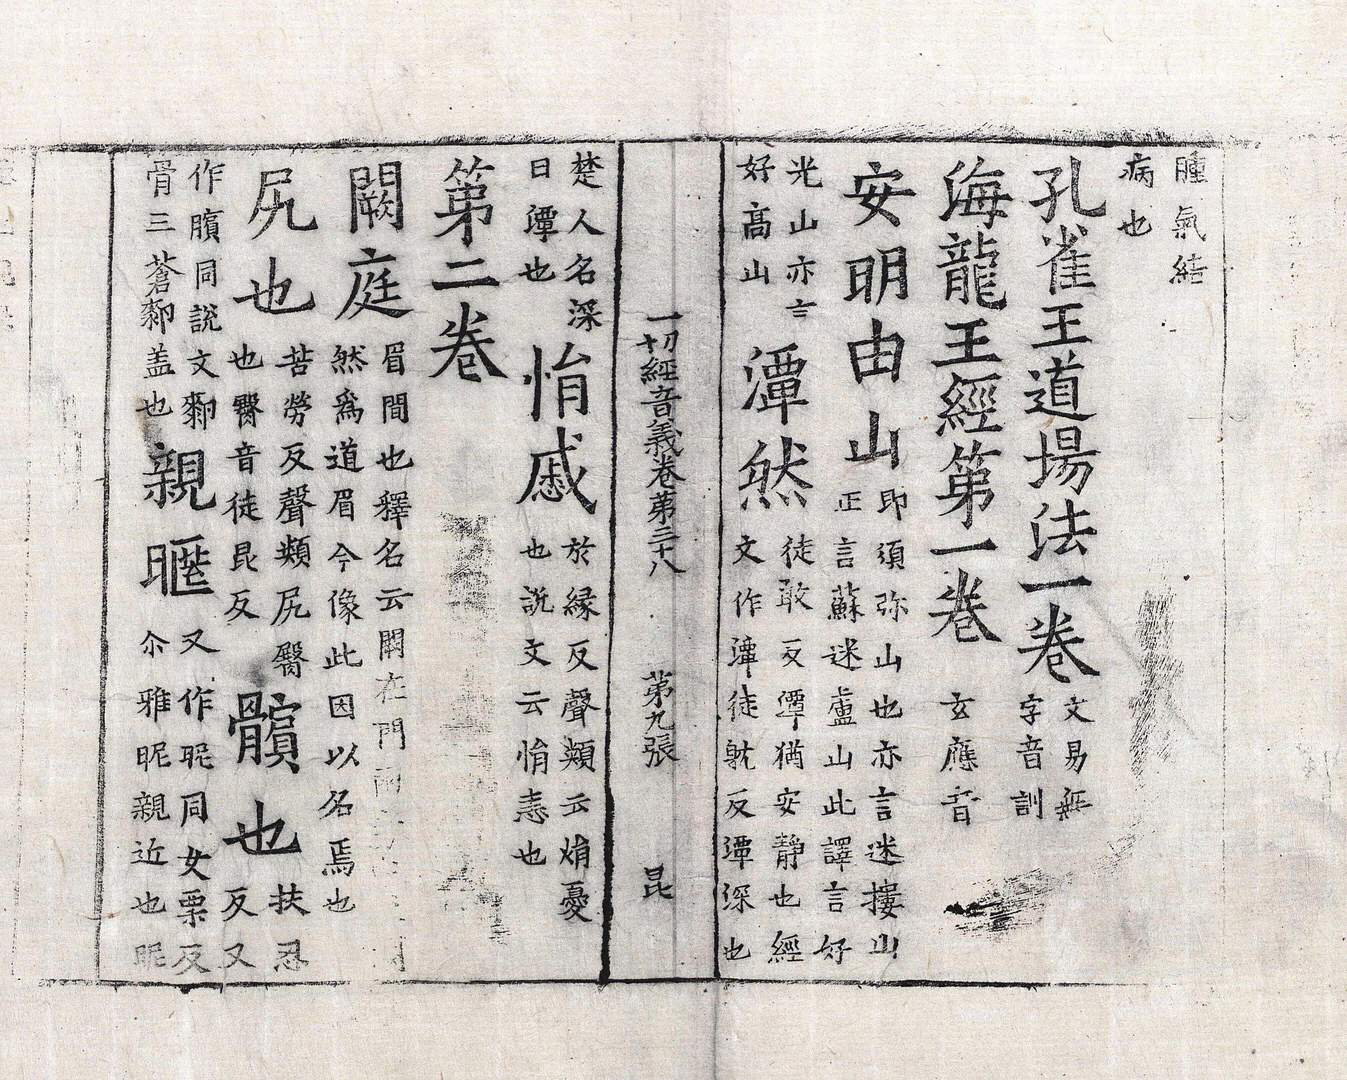 腫氣結
病也
孔雀王道場法一卷 文易無
字音訓
海龍王經第一卷 玄應音
安明由山 即須弥山也亦言迷摟山
正言蘇迷盧山此譯言好
光山亦言
好高山
潭然 徒敢反僤猶安靜也經
文作潭徒躭反潭深也
一切經音義卷第三十八 第九張 昆
楚人名深
曰潭也
悁慼 於緣反聲類云悁憂
也說文云悁恚也
第二卷
闕庭 眉間也釋名云闕在門兩
然為道眉今像此因以名焉也
尻也 苦勞反聲類尻臋
也臋音徒昆反
髕也 扶忍
反又
作臏同說文䣛
骨三蒼䣛盖也
親暱 又作昵同女栗反
尒雅昵親近也昵